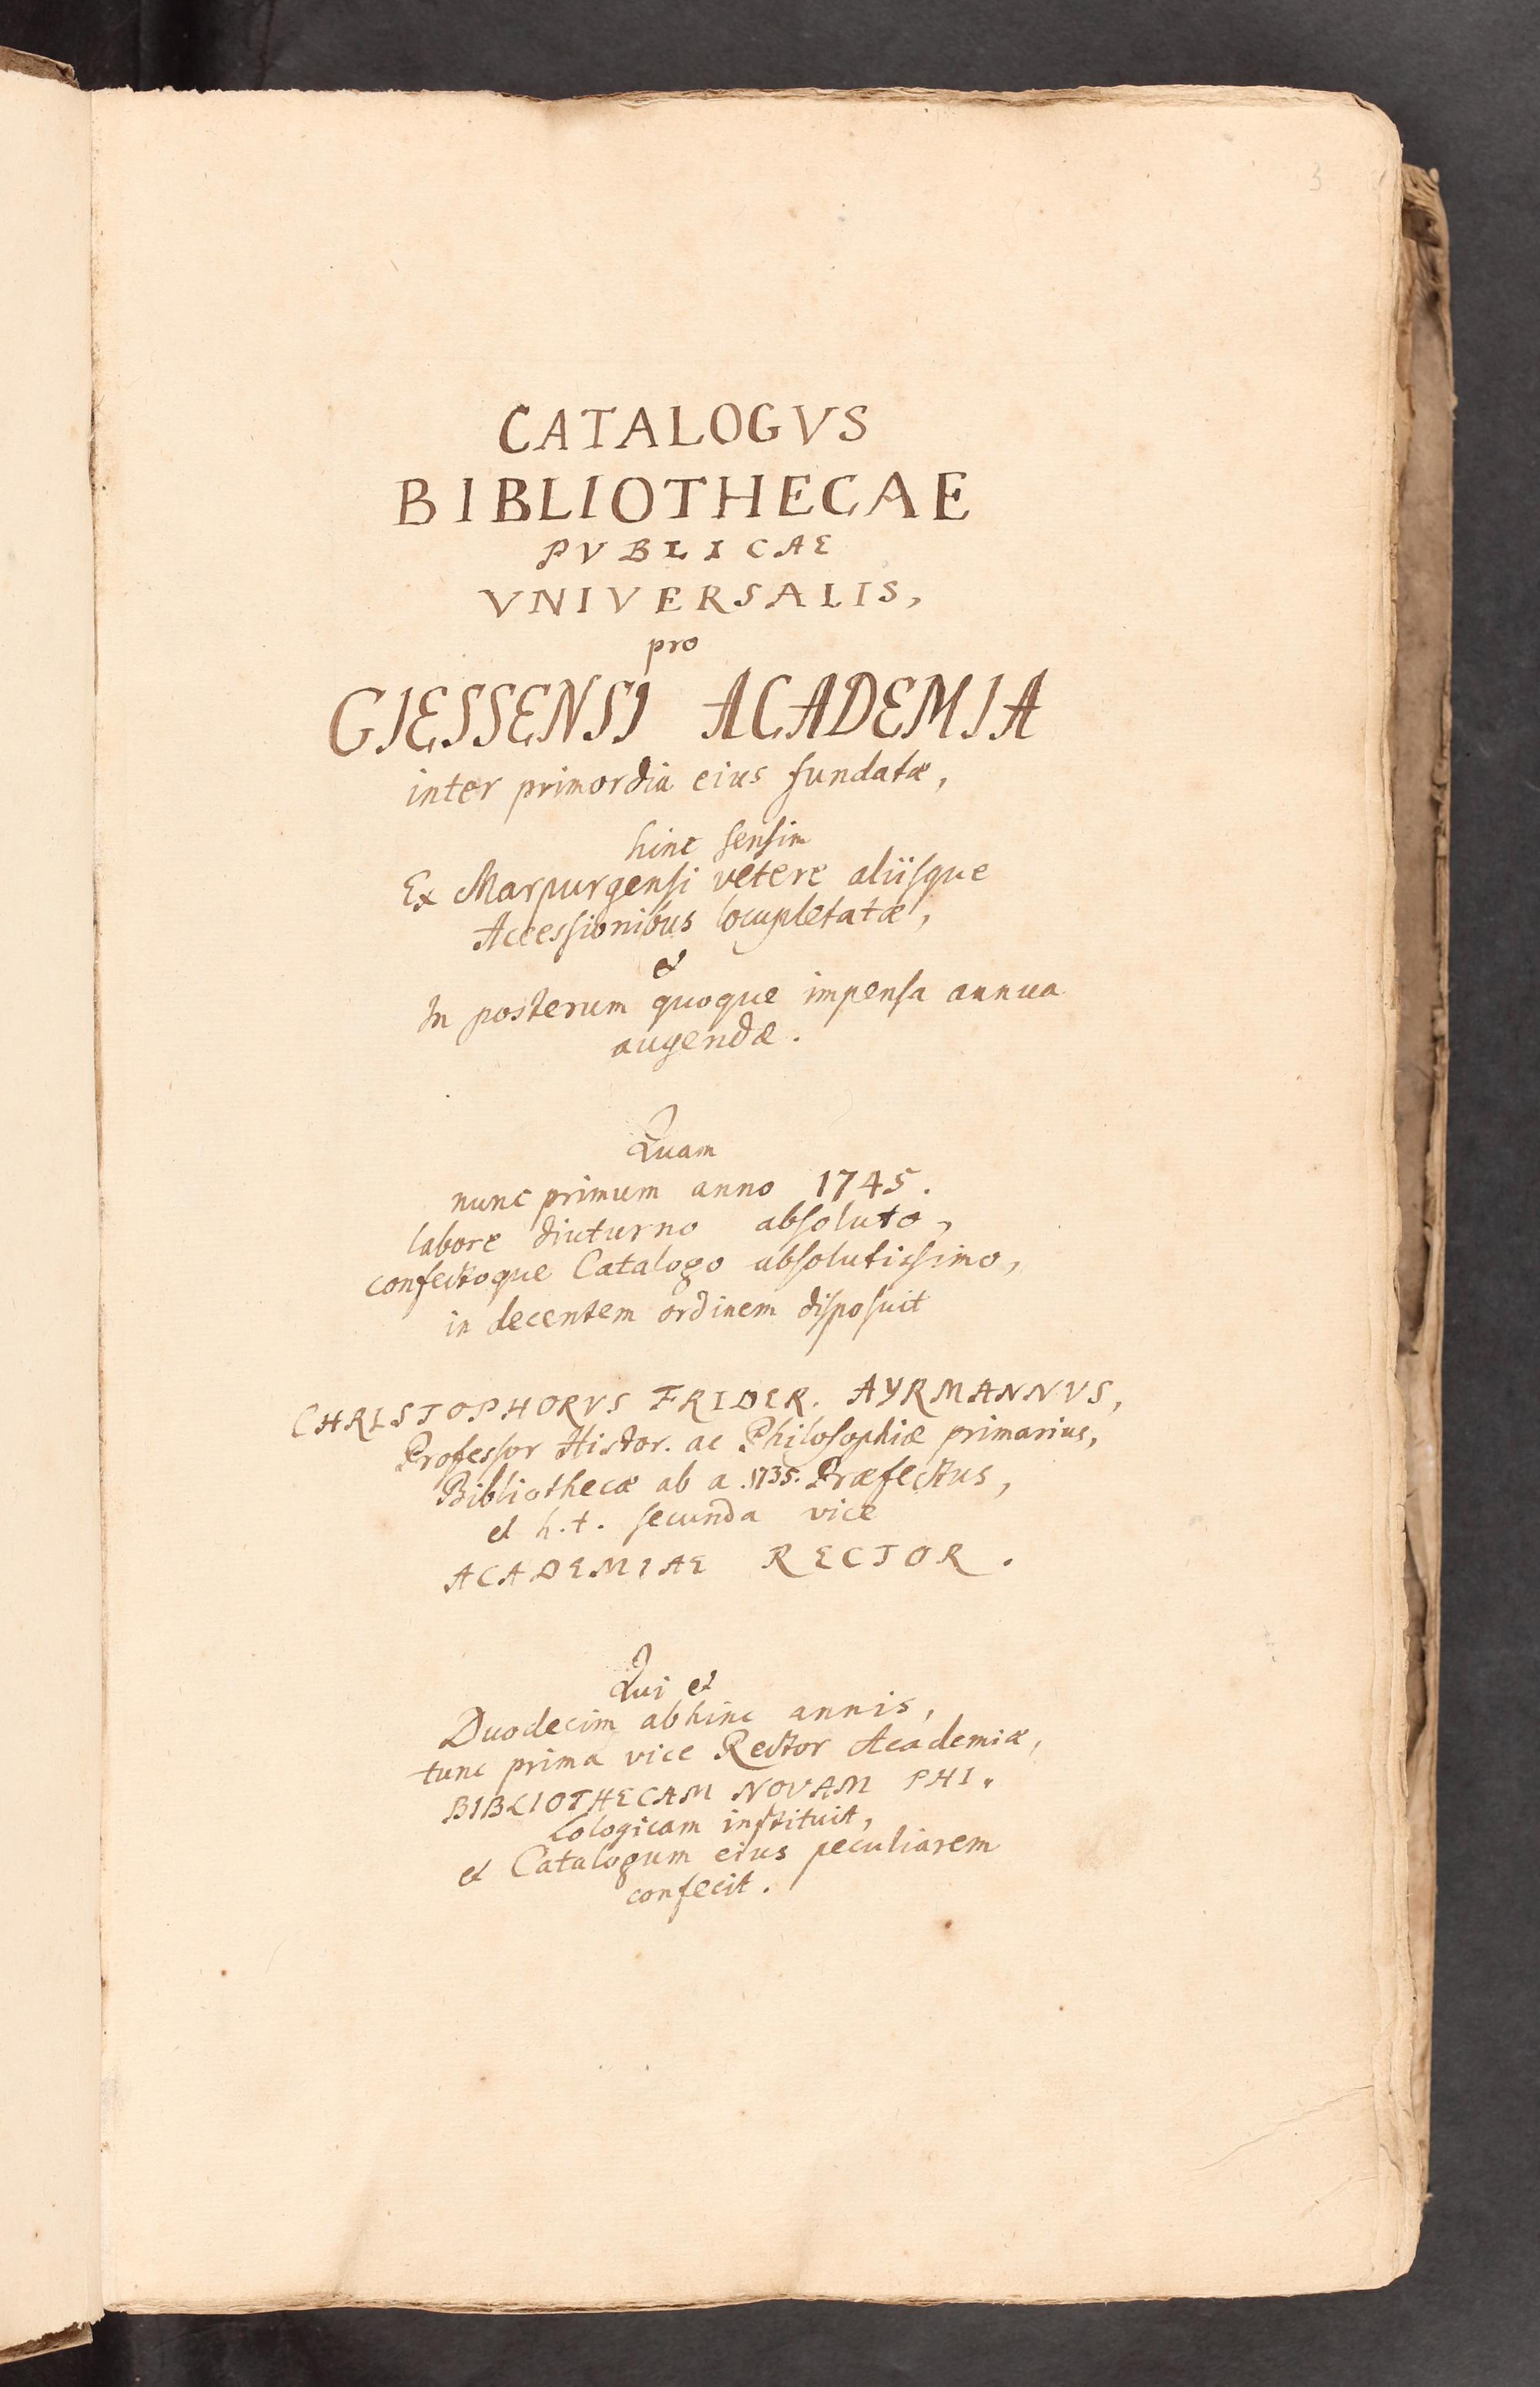 3
CATALOGVS
BIBLIOTHECAE
PVBLICAE
VNIVERSALIS,
pro
GIESSENSI ACADEMIA
inter primordia eius fundatæ,
hinc sensim
Ex Marpurgensi vetere aliisque
Accessionibus locupletatæ,
et
In posterum quoque impensa annua
augendæ.
Quam
nunc primum anno 1745.
labore diuturno absoluto,
confectoque Catalogo absolutissimo,
in decentem ordinem disposuit
CHRISTOPHORVS FRIDER. AYRMANNVS,
Professor Histor. ac Philosophiæ primarius,
Bibliothecæ ab a. 1735. Præfectus,
et h.t. secunda vice
ACADEMIAE RECTOR.
Qui et
Duodecim abhinc annis,
tunc prima vice Rector Academiæ,
BIBLIOTHECAM NOVAM PHI-
lologicam instituit,
et Catalogum eius peculiarem
confecit.